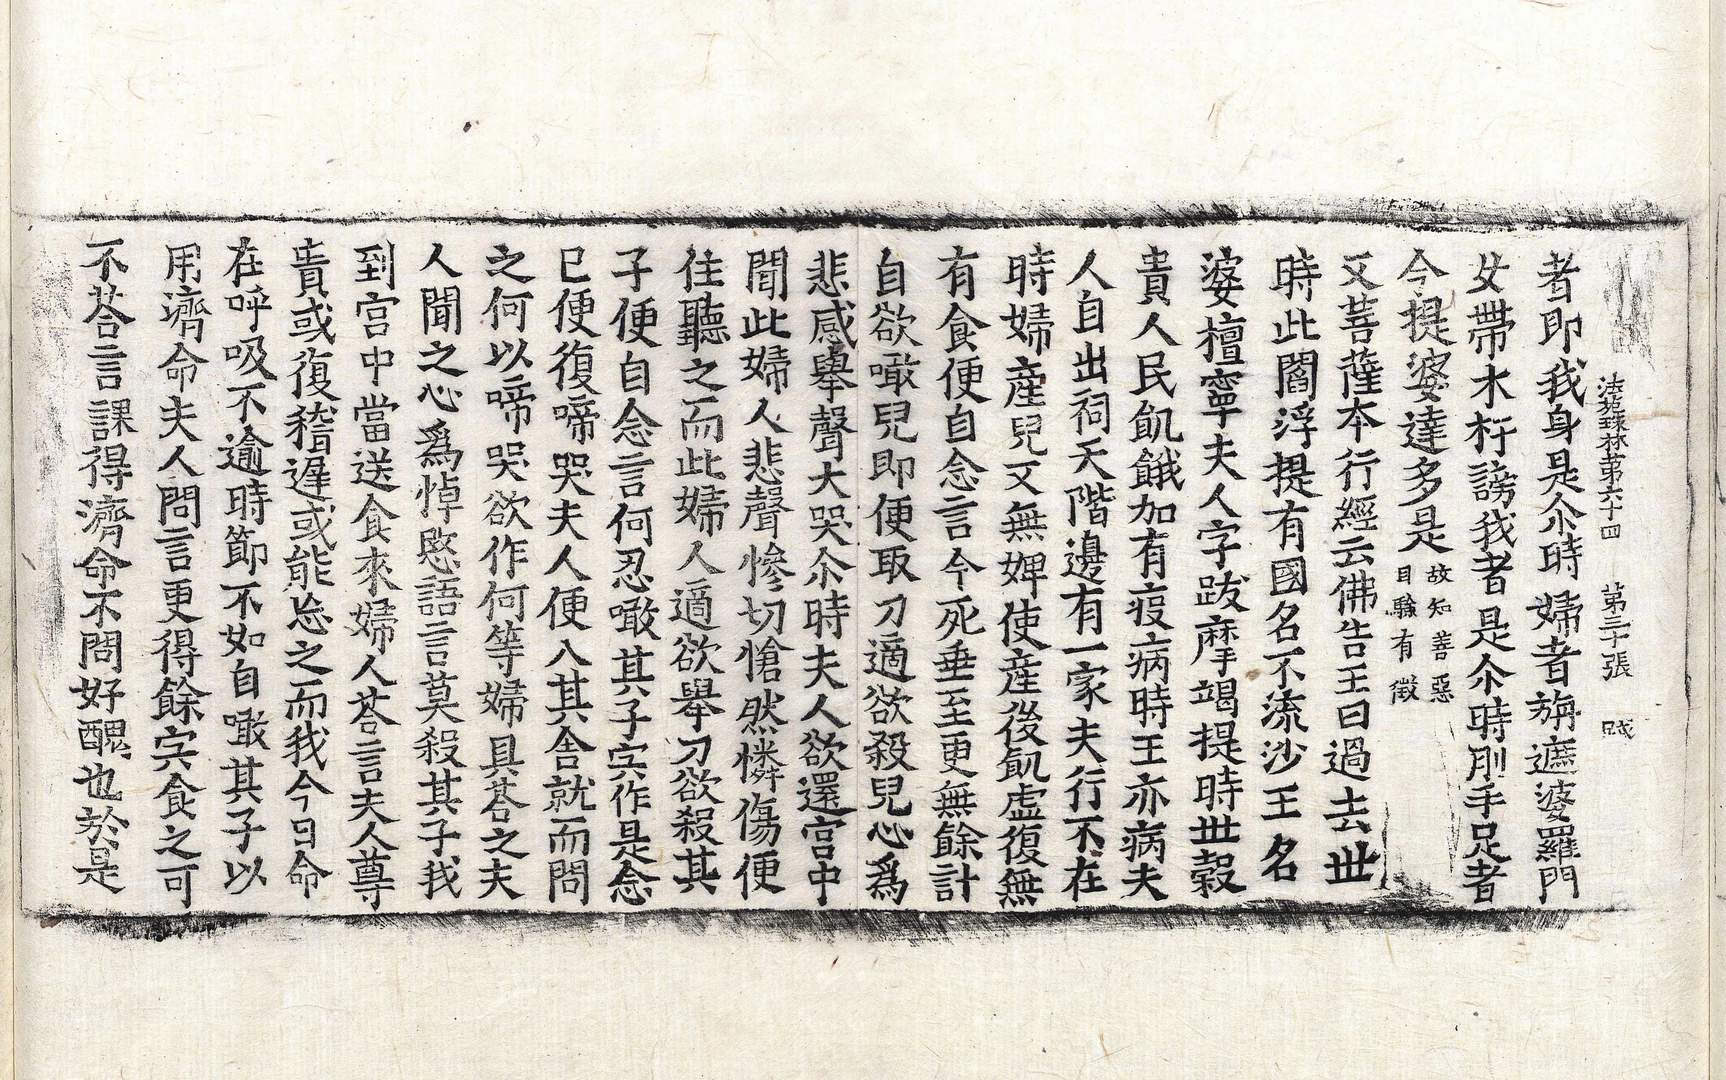 法苑珠林第六十四　第三十張
者即我身是尒時婦者旃遮婆羅門
女帶木杅謗我者是尒時刖手足者
今提婆達多是故知善惡目驗有徵
又菩薩本行經云佛告王曰過去丗
時此閻浮提有國名不流沙王名
婆檀寧夫人字跋摩竭提時丗穀
貴人民飢餓加有疫病時王亦病夫
人自出祠天階邊有一家夫行不在
時婦產兒又無婢使產後飢虛復無
有食便自念言今死垂至更無餘計
自欲噉兒即便取刀適欲殺兒心爲
悲感舉聲大哭尒時夫人欲還宮中
聞此婦人悲聲慘切愴然憐傷便
住聽之而此婦人適欲舉刀欲殺其
子便自念言何忍噉其子宍作是念
已便復啼哭夫人便入其舍就而問
之何以啼哭欲作何等婦具荅之夫
人聞之心爲悼愍語言莫殺其子我
到宮中當送食來婦人荅言夫人尊
貴或復稽遲或能忘之而我今日命
在呼吸不逾時節不如自噉其子以
用濟命夫人問言更得餘宍食之可
不荅言課得濟命不問好醜也於是